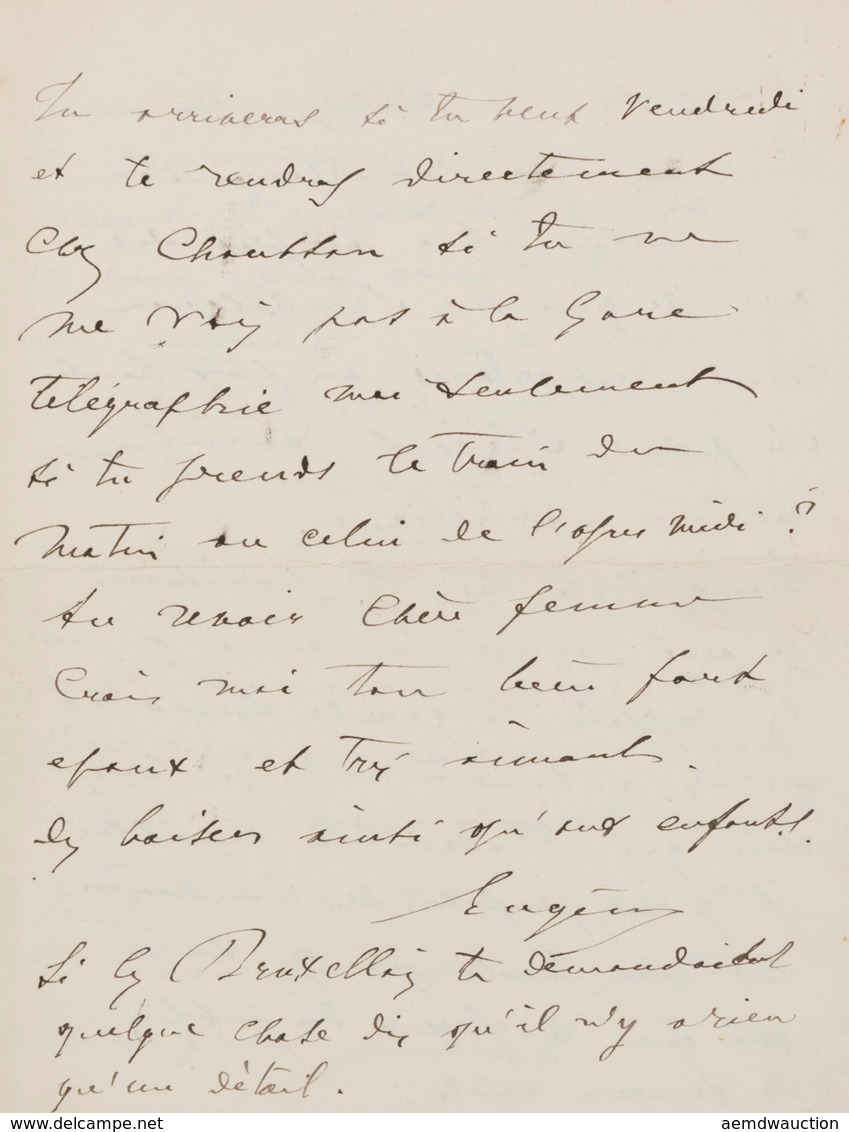 Tu arriveras si tu veux Vendredi
et te rendras directement
Chez Chausson si tu ne
me vois pas à la Gare
télégraphie moi seulement
si tu prends le train du
matin ou celui de l'apres midi ?
Au revoir Chère femme
Crois moi ton bien fort
epoux et très aimant.
Des baisers ainsi qu'aux enfants.
Eugène
Si les Bruxellois te demandaient
quelque chose dis qu'il n'y a rien
qu'un détail.
www.delcampe.net
aemdwauction